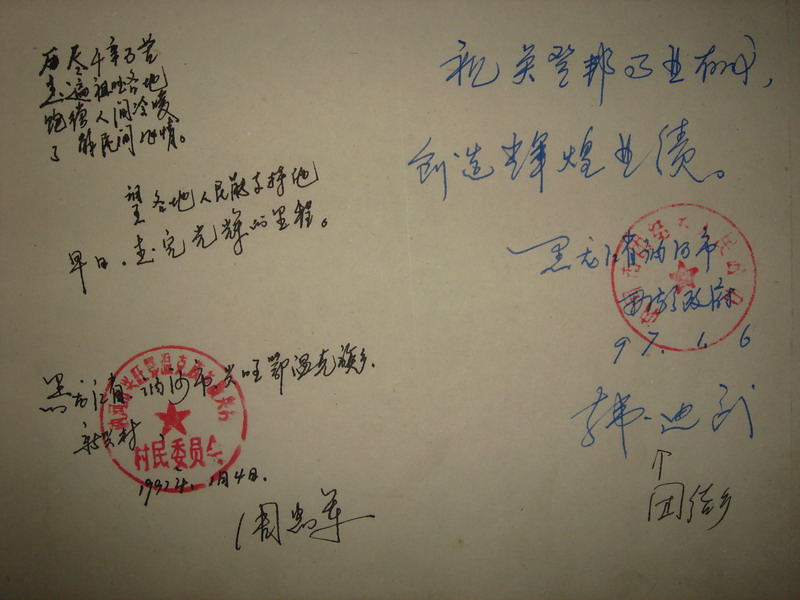 历尽千辛万苦
走遍祖国各地
饱尝人间冷暖
了解民间风情。
望各地人民献支持他
早日走完光辉的里程。
黑龙江省讷河市兴旺鄂温克族乡
新兴村
村民委员会
1997年1月4日.
祝英登邦事业有成,
创造辉煌业绩。
黑龙江省讷河市
乡政府
97.1.6
韩迪
团结乡